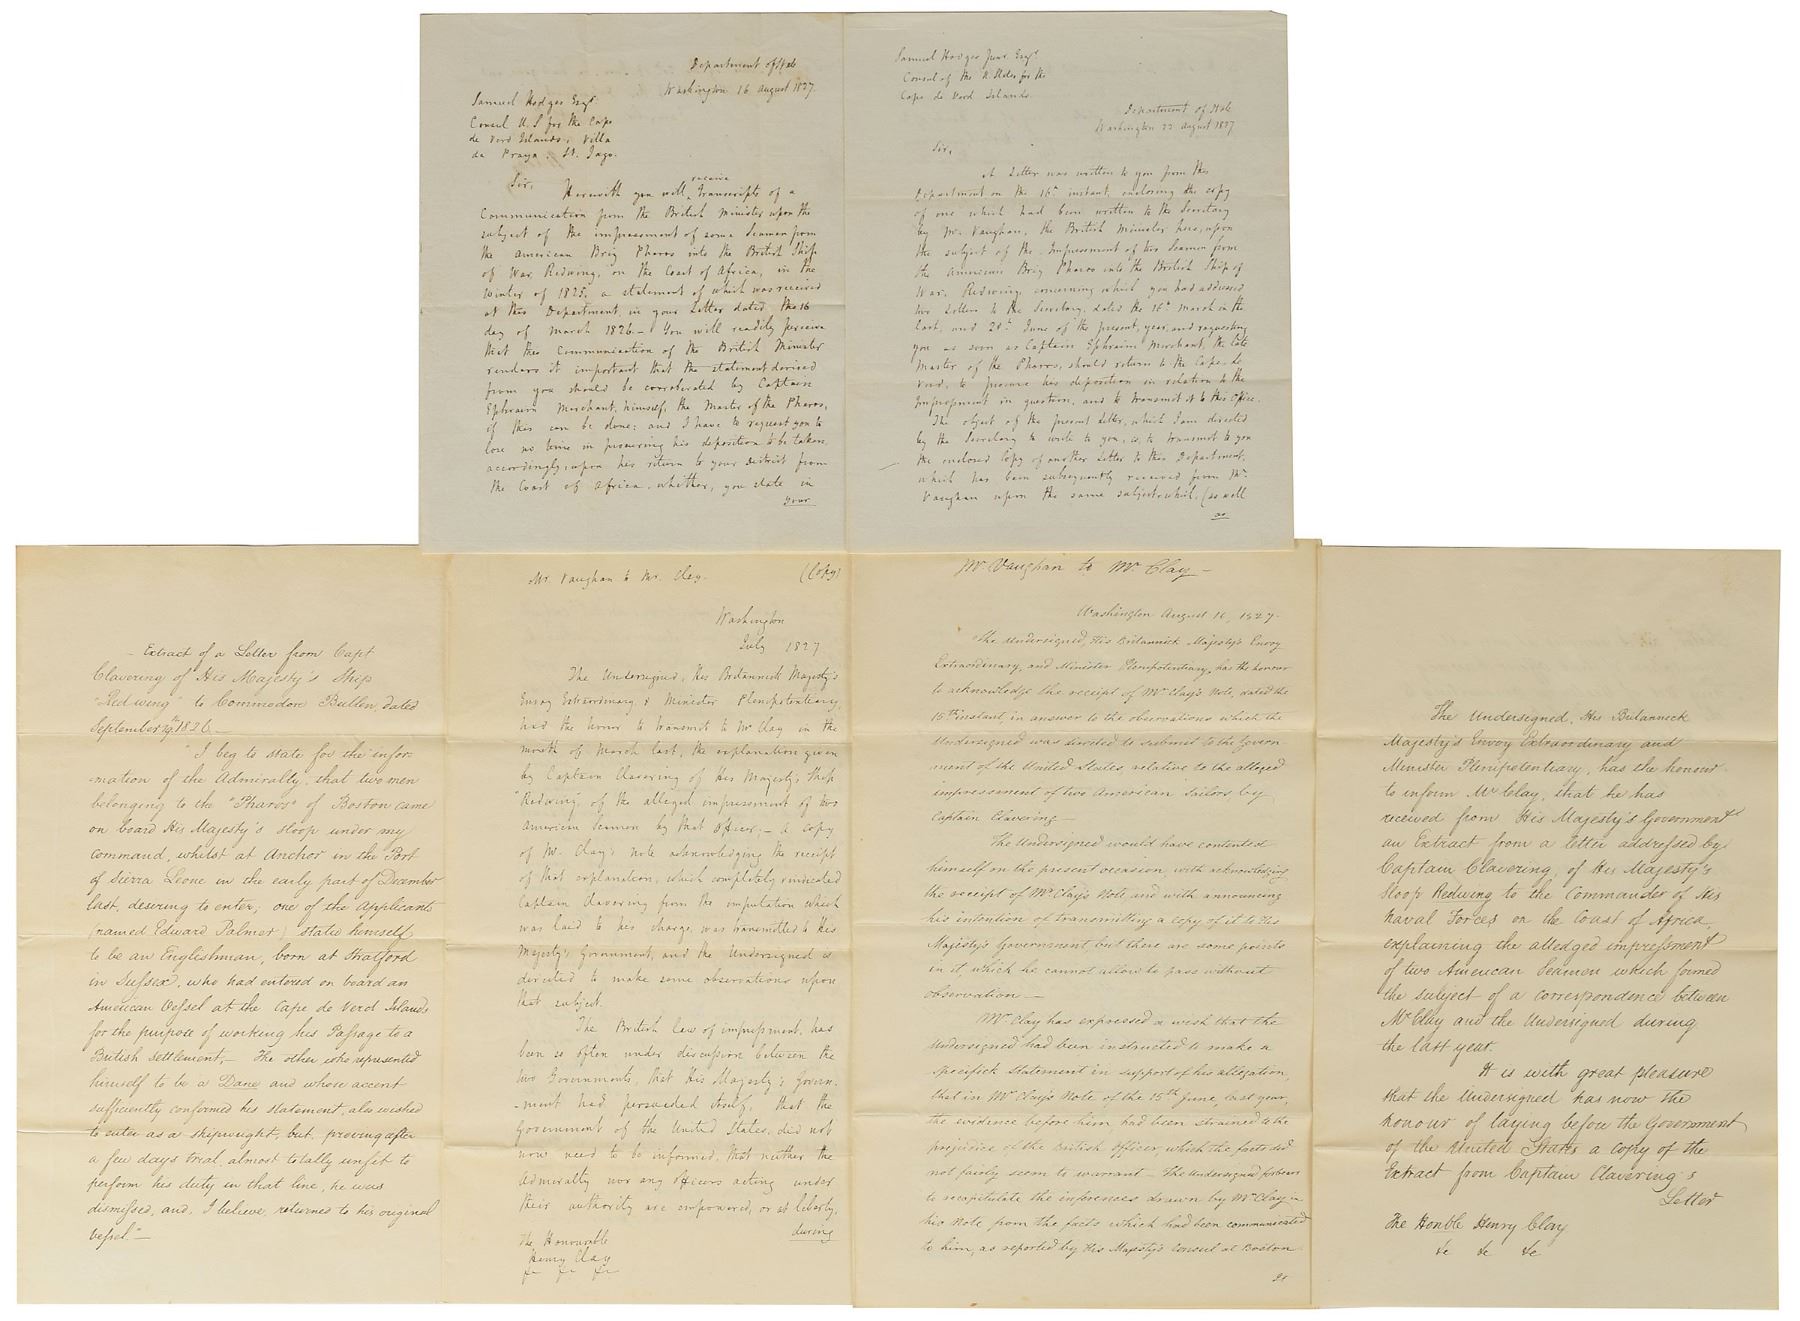 Department of State
Washington 16 August 1827.
Samuel Hodges Esqr.
Consul U. S for the Cape
de Verd Islands, Villa
da Praya. St. Jago.
Sir,
receive
Herewith you will ^ transcripts of a
Communication from the British Minister upon the
subject of the impressment of some Seamen from
the American Brig Pharos into the British Ship
of War Redwing, on the Coast of Africa, in the
Winter of 1825, a statement of which was received
at this Department, in your Letter dated the 16
day of March 1826.— You will readily perceive
that this Communication of the British Minister
renders it important that the statement derived
from you should be corroborated by Captain
Ephraim Merchant, himself, the Master of the Pharos,
if this can be done: and I have to request you to
lose no time in procuring his deposition to be taken
accordingly, upon his return to your District from
the Coast of Africa, whither, you state in
your
Samuel Hodges Junr Esqr
Consul of the U. States for the
Cape de Verd Islands.
Department of State
Washington 22 August 1827
Sir,
A Letter was written to you from this
Department on the 16th instant, enclosing the copy
of one which had been written to the Secretary
by Mr. Vaughan, the British Minister here, upon
the subject of the Impressment of two Seamen from
the American Brig Pharos into the British Ship of
War, Redwing, concerning which you had addressed
two Letters to the Secretary, dated the 16th March in the
last, and 28th June of the present, year, and requesting
you as soon as Captain Ephraim Merchant, the late
Master of the Pharos, should return to the Cape de
Verd, to procure his deposition in relation to the
Impressment in question, and to transmit it to this Office.
The object of the present Letter, which I am directed
by the Secretary to write to you, is, to transmit to you
the enclosed Copy of another Letter to this Department,
which has been subsequently received from Mr.
Vaughan upon the same subject, which, (as well
as
— Extract of a Letter from Capt
Clavering of His Majesty's Ship
"Redwing" to Commodore Bullen, dated
September 19th 1826.—
"I beg to state for the infor-
mation of the Admiralty, that two men
belonging to the "Pharos" of Boston came
on board His Majesty's Sloop under my
command, whilst at Anchor in the Port
of Sierra Leone in the early part of December
last, desiring to enter; one of the applicants
(named Edward Palmer) stated himself
to be an Englishman, born at Stratford
in Sussex, who had entered on board an
American Vessel at the Cape de Verd Islands
for the purpose of working his Passage to a
British Settlement;— The other, who represented
himself to be a Dane, and whose accent
sufficiently confirmed his statement, also wished
to enter as a shipwright, but, proving after
a few days trial, almost totally unfit to
perform his duty in that line, he was
dismissed, and, I believe, returned to his original
vessel."—
Mr. Vaughan to Mr. Clay. (Copy)
Washington
July 1827
The Undersigned, His Britannick Majesty's
Envoy Extraordinary & Minister Plenipotentiary,
had the honor to transmit to Mr Clay in the
month of March last, the explanation given
by Captain Clavering of His Majesty's Ship
"Redwing", of the alleged impressment of two
American Seamen by that officer;— a copy
of Mr. Clay's note acknowledging the receipt
of that explanation, which completely vindicated
Captain Clavering from the imputation which
was laid to his charge, was transmitted to His
Majesty's Government, and the Undersigned is
directed to make some observations upon
that subject.
The British law of impressment, has
been so often under discussion between the
two Governments, that His Majesty's Govern-
-ment had persuaded itself, that the
Government of the United States, did not
now need to be informed, that neither the
Admiralty nor any officers acting under
their authority are empowered, or at liberty,
during
The Honourable
Henry Clay
&c &c &c
Mr Vaughan to Mr Clay —
Washington August 18, 1827.
The undersigned, His Britannick Majesty's Envoy
Extraordinary, and Minister Plenipotentiary, has the honour
to acknowledge the receipt of Mr Clay's Note, dated the
15th instant, in answer to the observations which the
Undersigned was directed to submit to the Govern
ment of the United States, relative to the alleged
impressment of two American Sailors by
Captain Clavering —
The Undersigned would have contented
himself on the present occasion, with acknowledging
the receipt of Mr Clay's Note and with announcing
his intention of transmitting a copy of it to His
Majesty's Government but there are some points
in it, which he cannot allow to pass without
observation —
Mr Clay has expressed a wish that the
Undersigned had been instructed to make a
specifick statement in support of his allegation,
that in Mr Clay's Note of the 15th June, last year,
the evidence before him, had been strained to the
prejudice of the British Officer, which the facts did
not fairly seem to warrant — The Undersigned forbears
to recapitulate the inferences drawn by Mr Clay in
his Note from the facts which had been communicated
to him, as reported by His Majesty's Consul at Boston
The Undersigned, His Britannick
Majesty's Envoy Extraordinary and
Minister Plenipotentiary, has the honour
to inform Mr Clay, that he has
received from His Majesty's Government
an Extract from a letter addressed by
Captain Clavering, of His Majesty's
Sloop Redwing to the Commander of His
Naval Forces on the Coast of Africa,
explaining the alledged impressment
of two American Seamen which formed
the subject of a correspondence between
Mr Clay and the Undersigned during
the last year.
It is with great pleasure
that the Undersigned has now the
honour of laying before the Government
of the United States a copy of the
Extract from Captain Clavering's
Letter
The Honble Henry Clay
&c &c &c